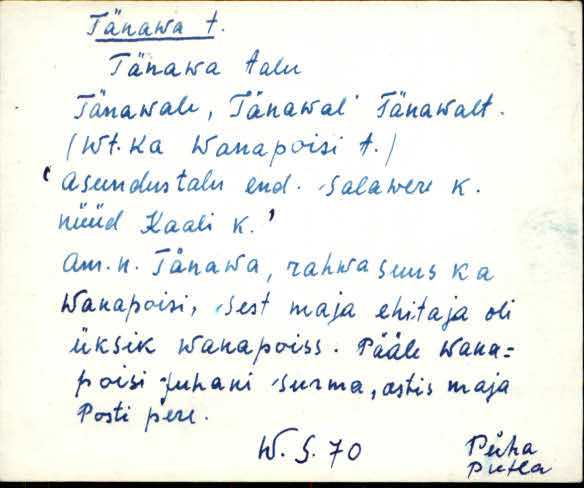 Tänawa t.
Tänawa talu
Tänawale, Tänawal Tänawalt.
(Wt. ka Wanapoisi t.)
'Asundustalu end. Salawere k.
nüüd Kaali k.'
Am. n. Tänawa, rahwa suus ka
Wanapoisi, sest maja ehitaja oli
üksik wanapoiss. Pääle Wana=
poisi Juhani surma, ostis maja
Posti pere.
W. S. 70
Püha
Putla